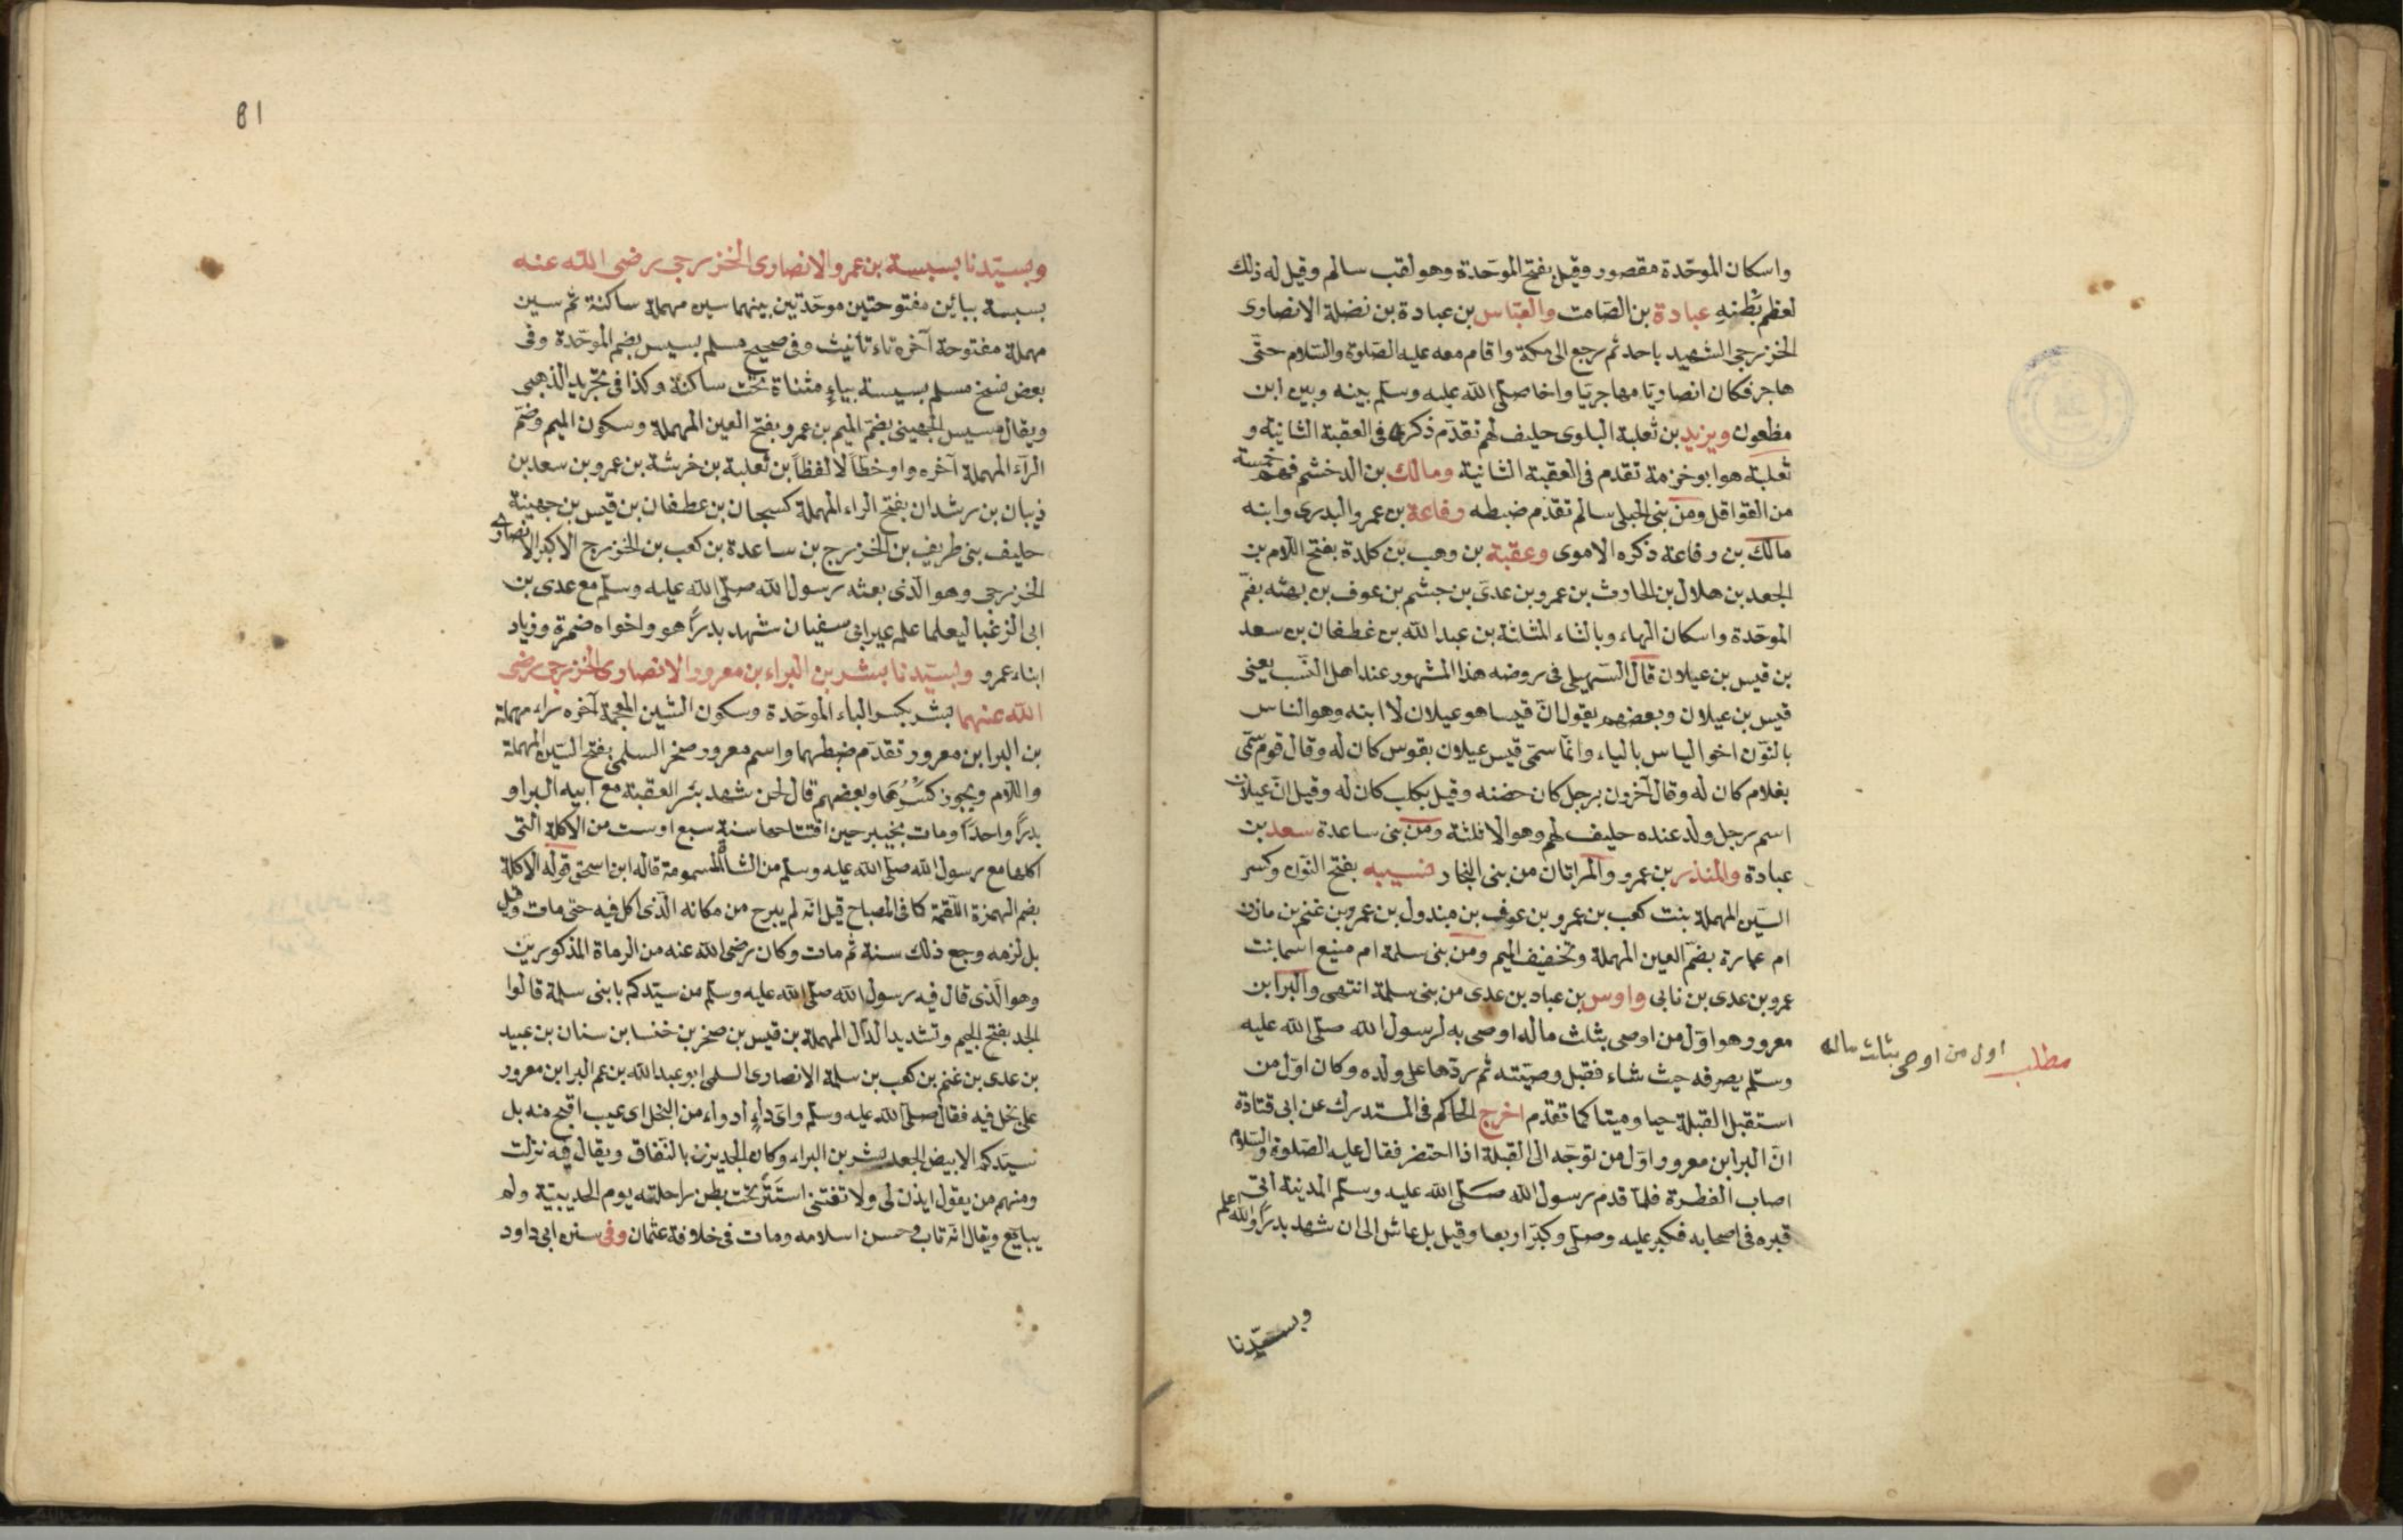 واسكان الموحّدة مقصور وقيل بفتح الموحّدة وهو لقب سالم وقيل له ذلك
لعظم بَطْنِهِ عبادة بن الصّامت والعبّاس بن عبادة بن نضلة الانصارى
الخزرجى الشهيد باحد ثم رجع الى مكة واقام معه عليه الصّلوة والسّلام حتّى
هاجر فكان انصاريّا مهاجريّا واخا صلّى الله عليه وسلّم بينه وبين ابن
مظعون ويزيد بن ثعلبة البلوى حليف لهم تقدّم ذكره فى العقبة الثانية و
ثعلبة هو ابو خزمة تقدم فى العقبة الثانية ومالك بن الدخشم فهم خمسة
من القواقل ومن بنى الحبلى سالم تقدّم ضبطه رفاعة بن عمرو البدرى وابنه
مالك بن رفاعة ذكره الاموى وعقبة بن وهب بن كلدة بفتح اللام بن
الجعد بن هلال بن الحارث بن عمرو بن عدىّ بن جشم بن عوف بن بهثه بضمّ
الموحّدة واسكان الهاء وبالثاء المثلثة بن عبد الله بن غطفان بن سعد
بن قيس بن عيلان قال السّهيلى فى روضه هذا المشهور عند اهل النّسب يعنى
قيس بن عيلان وبعضهم يقول انّ قيسا هو عيلان لا ابنه وهو الناس
بالنّون اخو الياس بالياء وانّما سمّى قيس عيلان بقوس كان له وقال قوم سمّى
بغلام كان له وقال آخرون برجل كان حضنه وقيل بكلب كان له وقيل انّ عيلان
اسم رجل ولد عنده حليف لهم وهو الا فلثة ومن بنى ساعدة سعد بن
عبادة والمنذر بن عمرو والمراتان من بنى النجار نسيبه بفتح النّون وكسر
السّين المهملة بنت كعب بن عمرو بن عوف بن مبذول بن عمرو بن غنم بن مازن
ام عمارة بضمّ العين المهملة وتخفيف الميم ومن بنى سلمة ام منيع اسما بنت
عمرو بن عدى بن نابى واوس بن عباد بن عدى من بنى سلمة انتهى والبرا بن
معرور وهو اوّل من اوصى بثلث ماله اوصى به لرسول الله صلّى الله عليه
وسلّم يصرفه حيث شاء فقبل وصيّته ثم ردّها على ولده وكان اوّل من
مطلب اول من اوصى بثلث ماله
استقبل القبلة حيا وميتا كما تقدّم اخرج الحاكم فى المستدرك عن ابى قتادة
انّ البرا بن معرور اوّل من توجّه الى القبلة اذا احتضر فقال عليه الصّلوة والسّلام
اصاب الفطرة فلمّا قدم رسول الله صلّى الله عليه وسلّم المدينة اتى
قبره فى اصحابه فكبر عليه وصلّى وكبّر اربعا وقيل بل عاش الى ان شهد بدرًا والله اعلم
وبسيّدنا
81
وبسيّدنا بسبسة بن عمرو الانصارى الخزرجى رضى الله عنه
بسبسة ببائين مفتوحتين موحّدتين بينهما سين مهملة ساكنة ثم سين
مهملة مفتوحة آخره تاء تأنيث وفى صحيح مسلم بسيس بضم الموحّدة وفى
بعض نسخ مسلم بسيسة بياءٍ مثناة تحت ساكنة وكذا فى تجريد الذهبى
ويقال مسيس الجهينى بضمّ الميم بن عمرو بفتح العين المهملة وسكون الميم وضمّ
الرّاء المهملة آخره واو خطّاً لا لفظاً بن ثعلبة بن خرشة بن عمرو بن سعد بن
ذبيان بن رشدان بفتح الراء المهملة كسبحان بن عطفان بن قيس بن جهينة
حليف بنى طريف بن الخزرج بن ساعدة بن كعب بن الخزرج الاكبر الانصارى
الخزرجى وهو الّذى بعثه رسول الله صلّى الله عليه وسلّم مع عدى بن
ابى الزغبا ليعلما علم عير ابى سفيان شهد بدرًا هو واخواه ضمرة وزياد
ابناء عمرو وبسيّدنا بشر بن البراء بن معرور الانصارى الخزرجى رضى
الله عنهما بشر بكسر الباء الموحّدة وسكون الشين المعجمة آخره راء مهملة
بن البرا بن معرور تقدّم ضبطهما واسم معرور صخر السلمى بفتح السّين المهملة
واللّام ويجوز كَسْرُهَا وبعضهم قال لحن شهد بشر العقبة مع ابيه البرا و
بدرًا واحدًا ومات بخيبر حين افتتاحها سنة سبع او ست من الاكلة التى
اكلها مع رسول الله صلّى الله عليه وسلّم من الشاة المسمومة قاله ابن اسحق قوله الاكلة
بضم الهمزة اللّقمة كما فى المصباح قيل انّه لم يبرح من مكانه الّذى اكل فيه حتى مات وقيل
بل لزمه وجع ذلك سنة ثم مات وكان رضى الله عنه من الرماة المذكورين
وهو الّذى قال فيه رسول الله صلّى الله عليه وسلّم من سيّدكم يا بنى سلمة قالوا
الجد بفتح الجيم وتشديد الدّال المهملة بن قيس بن صخر بن خنسا بن سنان بن عبيد
بن عدى بن غنم بن كعب بن سلمة الانصارى السلمى ابو عبد الله بن عم البرا بن معرور
على بخل فيه فقال صلّى الله عليه وسلّم واىّ داءٍ أدواء من البخل اى عيب اقبح منه بل
سيّدكم الابيض الجعد بشر بن البراء وكان الجد يزن بالنّفاق ويقال فيه نزلت
ومنهم من يقول ايذن لى ولا تفتنى استَتَر تحت بطن راحلته يوم الحديبيّة ولم
يبايع ويقال انّه تاب وحسن اسلامه ومات فى خلافة عثمان وفى سنن ابى داود